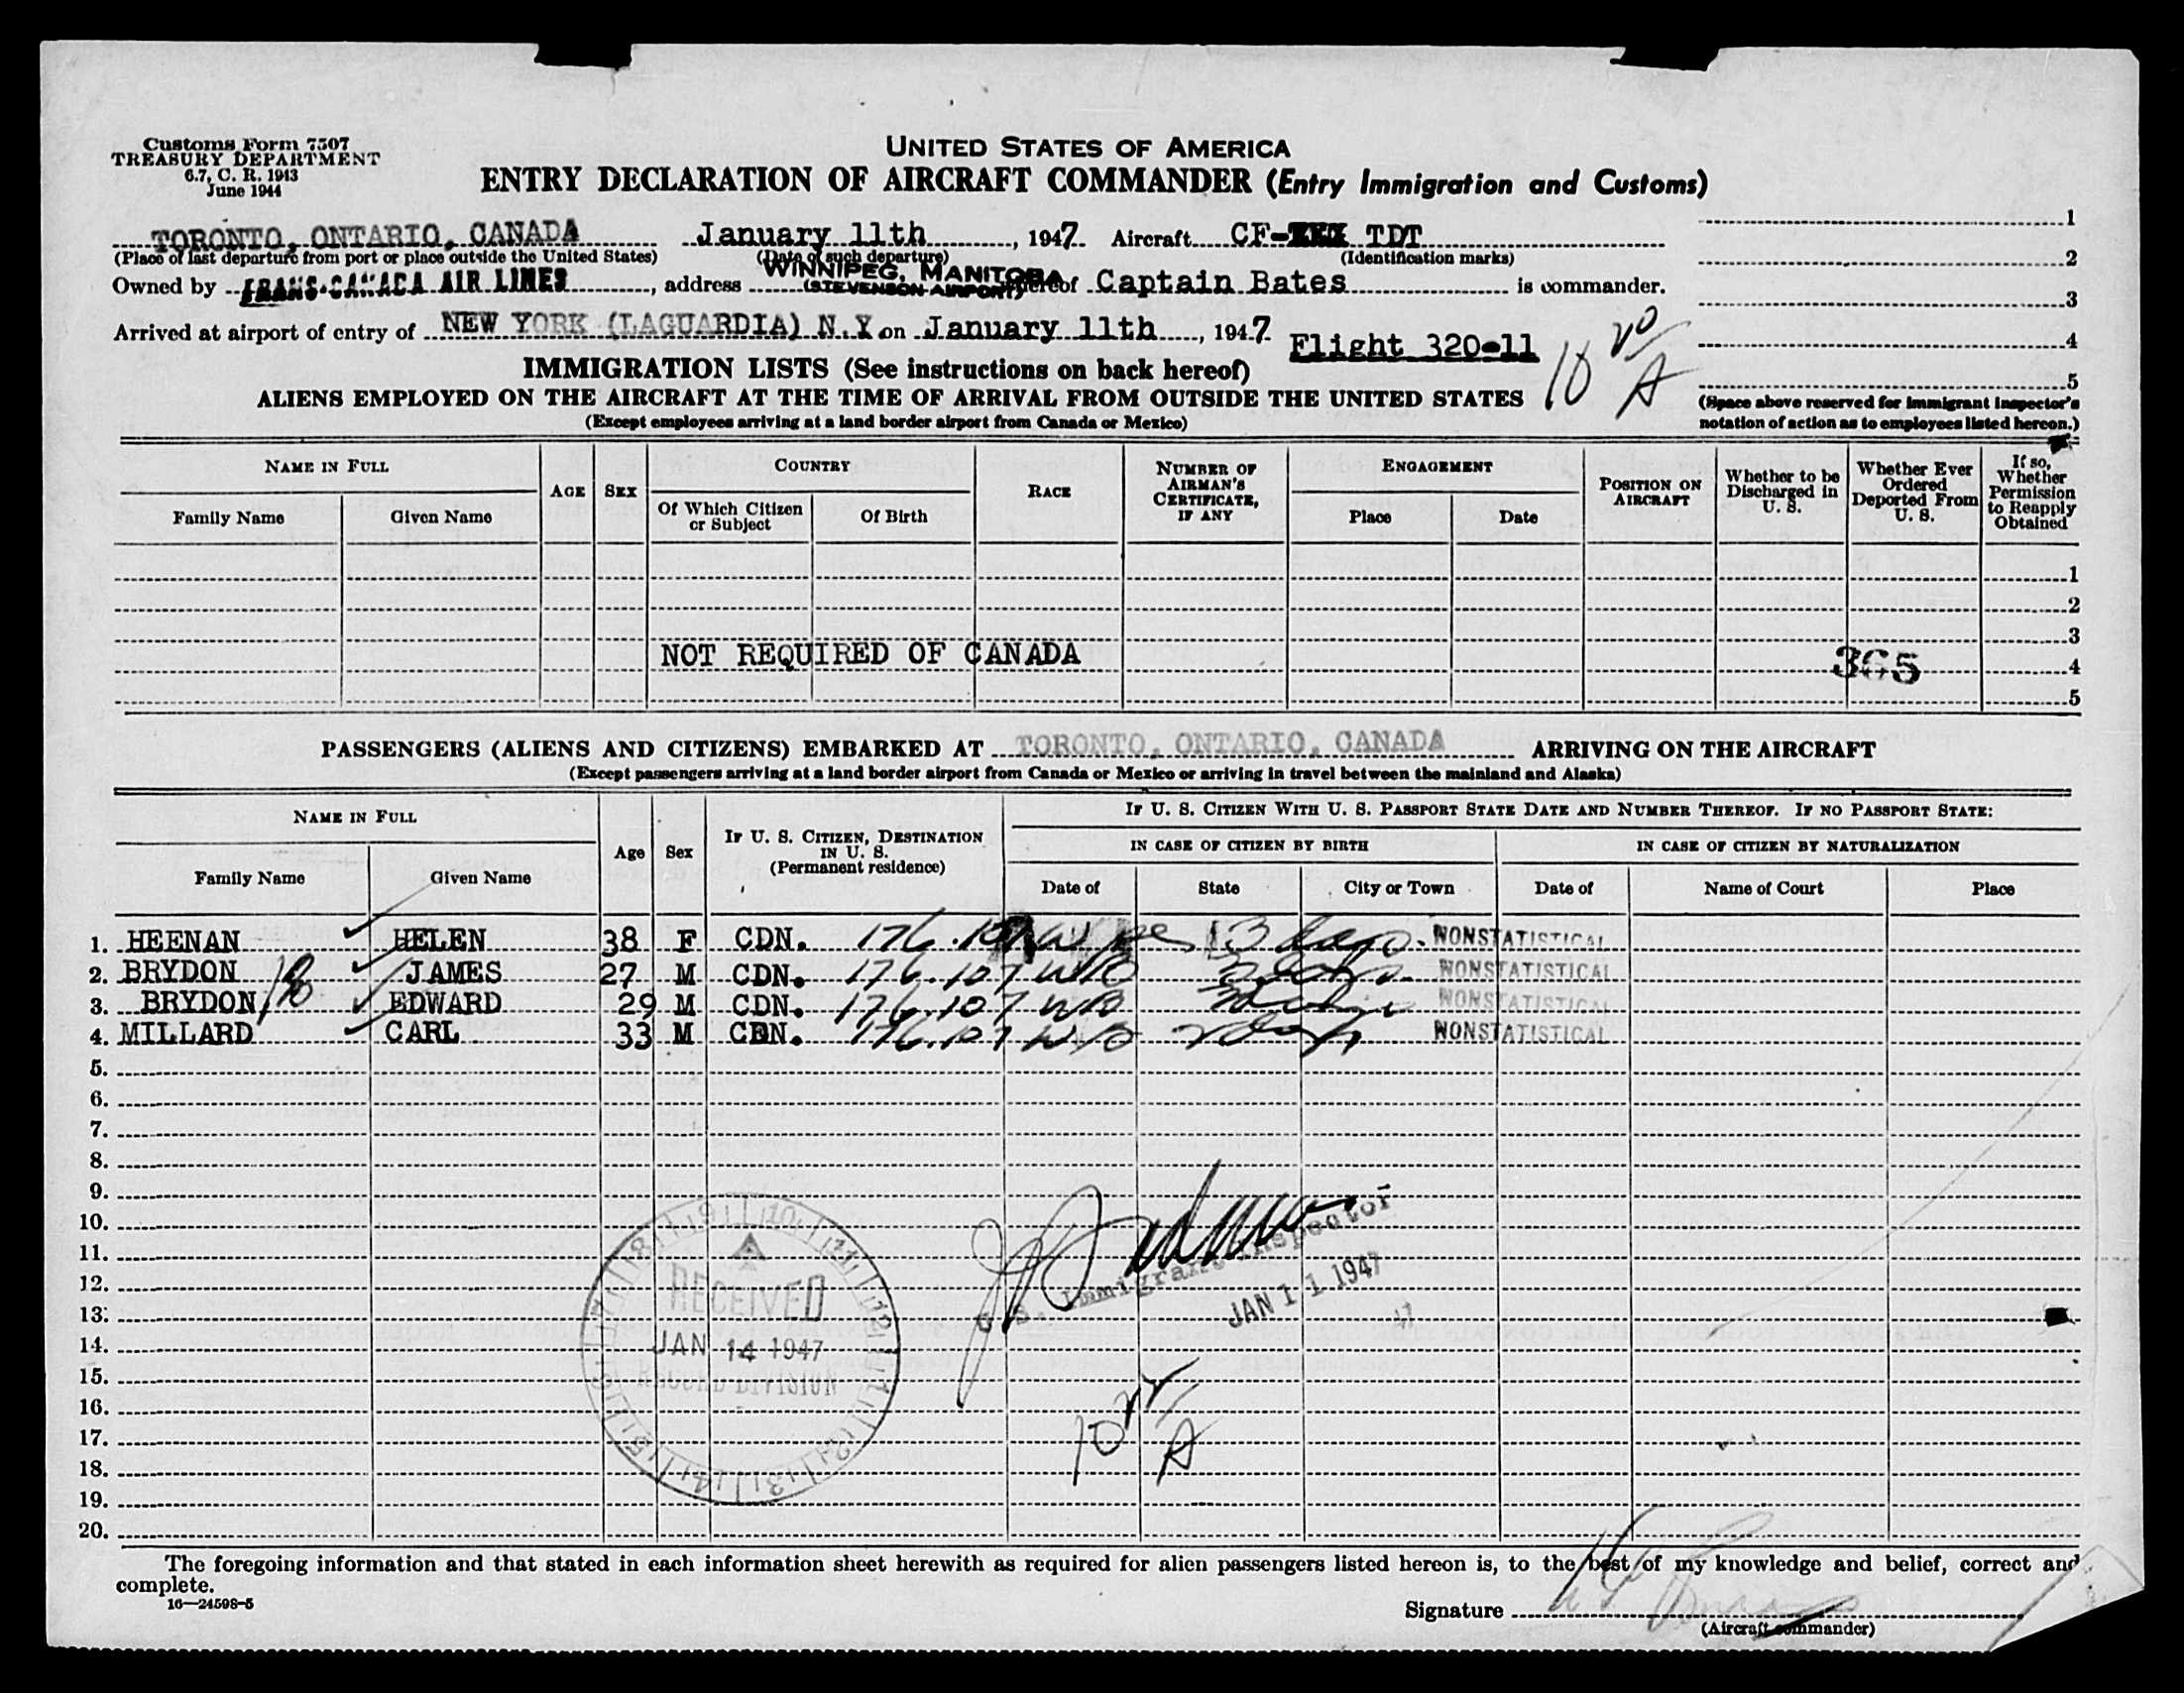 Customs Form 7507
TREASURY DEPARTMENT
6.7, C. R. 1943
June 1944
UNITED STATES OF AMERICA
ENTRY DECLARATION OF AIRCRAFT COMMANDER (Entry Immigration and Customs)
TORONTO, ONTARIO, CANADA January 11th, 1947 Aircraft CF-XXX TDT 1
(Place of last departure from port or place outside the United States) (Date of such departure) (Identification marks)
2
WINNIPEG, MANITOBA
Owned by TRANS-CANADA AIR LINES, address (STEVENSON AIRPORT) hereof Captain Bates is commander.
3
Arrived at airport of entry of NEW YORK (LAGUARDIA) N.Y on January 11th, 1947
Flight 320-11 10 20 A 4
IMMIGRATION LISTS (See instructions on back hereof)
5
ALIENS EMPLOYED ON THE AIRCRAFT AT THE TIME OF ARRIVAL FROM OUTSIDE THE UNITED STATES
(Except employees arriving at a land border airport from Canada or Mexico)
(Space above reserved for immigrant inspector's
notation of action as to employees listed hereon.)
NAME IN FULL AGE SEX COUNTRY RACE NUMBER OF AIRMAN'S CERTIFICATE, IF ANY ENGAGEMENT POSITION ON AIRCRAFT Whether to be Discharged in U. S. Whether Ever Ordered Deported From U. S. If so, Whether Permission to Reapply Obtained
Family Name Given Name Of Which Citizen or Subject Of Birth Place Date
1
2
3
NOT REQUIRED OF CANADA 365
4
5
PASSENGERS (ALIENS AND CITIZENS) EMBARKED AT TORONTO, ONTARIO, CANADA ARRIVING ON THE AIRCRAFT
(Except passengers arriving at a land border airport from Canada or Mexico or arriving in travel between the mainland and Alaska)
NAME IN FULL Age Sex IF U. S. CITIZEN, DESTINATION IN U. S. (Permanent residence) IF U. S. CITIZEN WITH U. S. PASSPORT STATE DATE AND NUMBER THEREOF. IF NO PASSPORT STATE:
IN CASE OF CITIZEN BY BIRTH IN CASE OF CITIZEN BY NATURALIZATION
Family Name Given Name Date of State City or Town Date of Name of Court Place
1. HEENAN HELEN 38 F CDN. 176.107 13 days NONSTATISTICAL
2. BRYDON JAMES 27 M CDN. 176.107 WB NONSTATISTICAL
3. BRYDON EDWARD 29 M CDN. 176.107 WB NONSTATISTICAL
4. MILLARD CARL 33 M CDN. 176.107 WB NONSTATISTICAL
5.
6.
7.
8.
9.
10.
11.
12.
13.
14.
15.
16.
17.
18.
19.
20.
U. S. Immigrant Inspector
JAN 11 1947
47
RECEIVED
JAN 14 1947
RECORD DIVISION
10 22 A
The foregoing information and that stated in each information sheet herewith as required for alien passengers listed hereon is, to the best of my knowledge and belief, correct and
complete.
16—24598-5
Signature
(Aircraft commander)